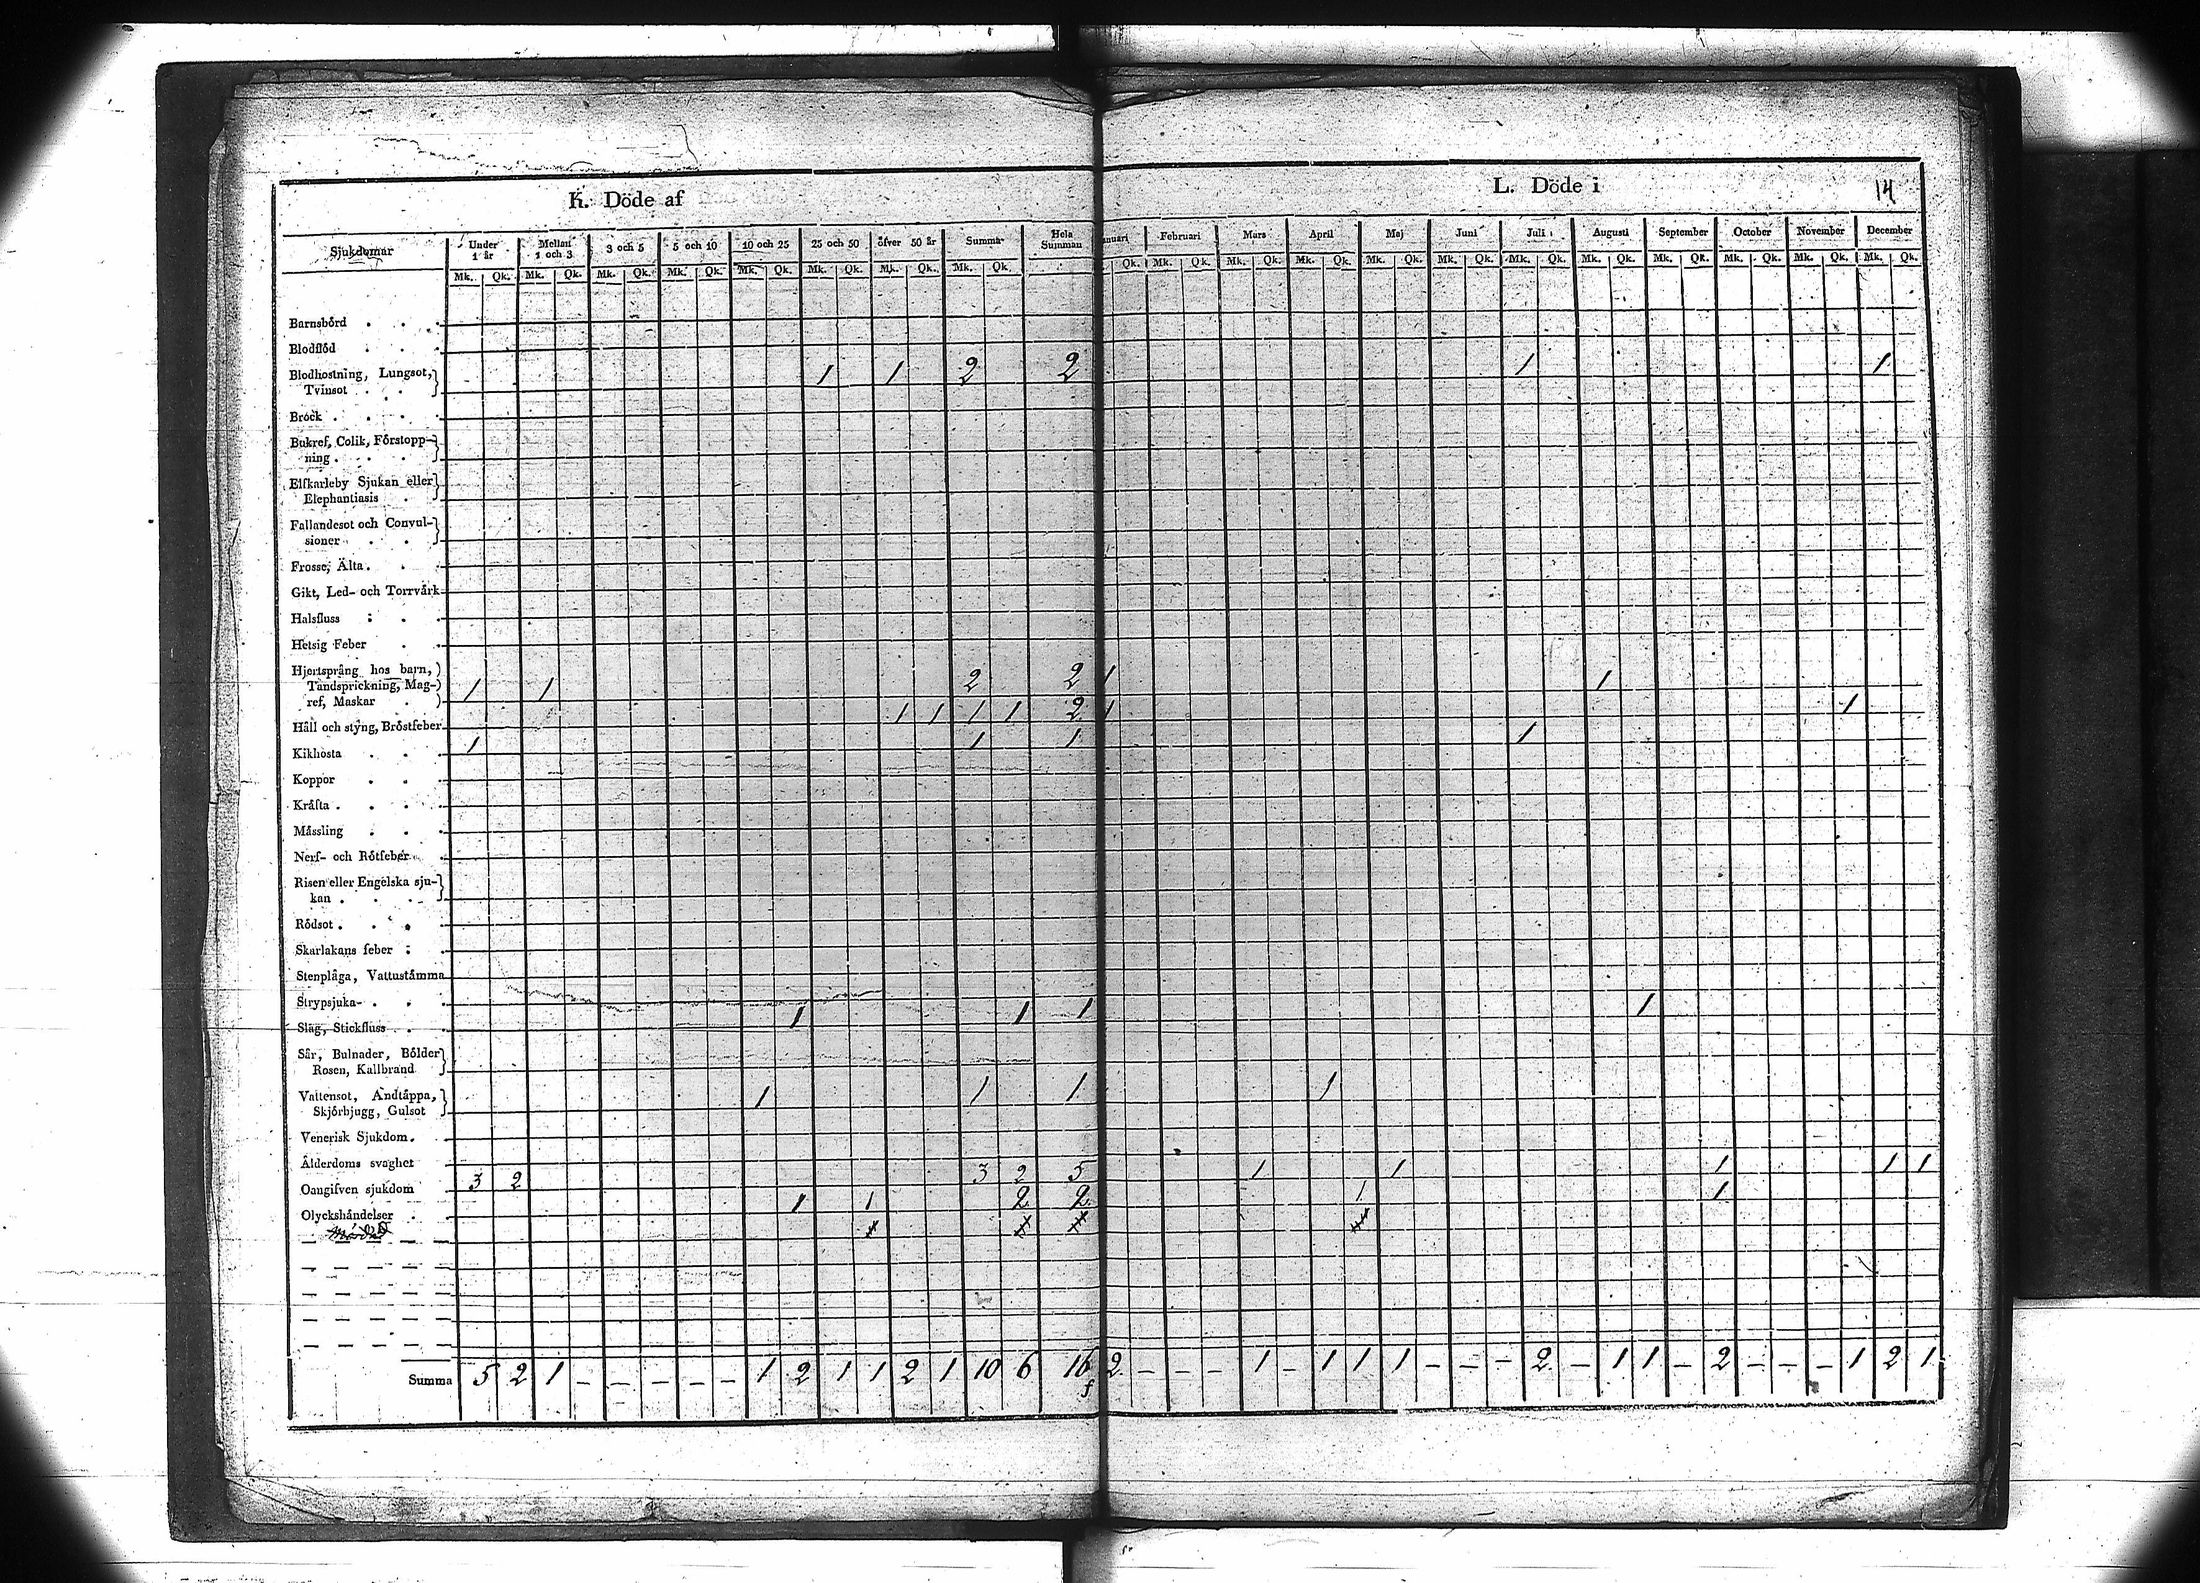 K. Döde af
L. Döde i
14
Sjukdomar Under 1 år Mellan 1 och 3 3 och 5 5 och 10 10 och 25 25 och 50 öfver 50 år Summa Hela Summan
Februari Mars April Maj Juni Juli Augusti September October November December
Mk. Qk. Mk. Qk. Mk. Qk. Mk. Qk. Mk. Qk. Mk. Qk. Mk. Qk. Mk. Qk.
Qk. Mk. Qk. Mk. Qk. Mk. Qk. Mk. Qk. Mk. Qk. Mk. Qk. Mk. Qk. Mk. Qk. Mk. Qk. Mk. Qk. Mk. Qk.
Barnsbörd . . .
Blodflöd . . .
Blodhostning, Lungsot,
Tvinsot . . . 1 1 2 2 1 1
Bröck . . . .
Bukref, Colik, Förstopp-
ning . . . .
Elfkarleby Sjukan eller
Elephantiasis .
Fallandesot och Convul-
sioner . . .
Frosse, Älta . . .
Gikt, Led- och Torrvärk
Halsfluss . . .
Hetsig Feber . .
Hjertsprång hos barn,
Tandsprickning, Mag-
ref, Maskar . 1 1 2 2 1 1
Håll och styng, Bröstfeber 1 1 1 1 2 1 1
Kikhosta . . . 1 1 1 1
Koppor . . .
Kräfta . . . .
Mässling . . .
Nerf- och Rötfeber . .
Risen eller Engelska sju-
kan . . . .
Rödsot . . . .
Skarlakans feber : .
Stenplåga, Vattustämma
Strypsjuka . . .
Slag, Stickfluss . . 1 1 1 1
Sår, Bulnader, Bölder
Rosen, Kallbrand
Vattensot, Andtäppa,
Skjörbjugg, Gulsot 1 1 1 1
Venerisk Sjukdom . .
Ålderdoms svaghet
Oangifven sjukdom 3 2 3 2 5 1 1 1 1 1
Olyckshändelser . 1 1 2 2 1 1
Summa 5 2 1 - - - - - 1 2 1 1 2 1 10 6 16 2 - - - 1 - 1 1 1 - - - 2 - 1 1 - 2 - - - 1 2 1